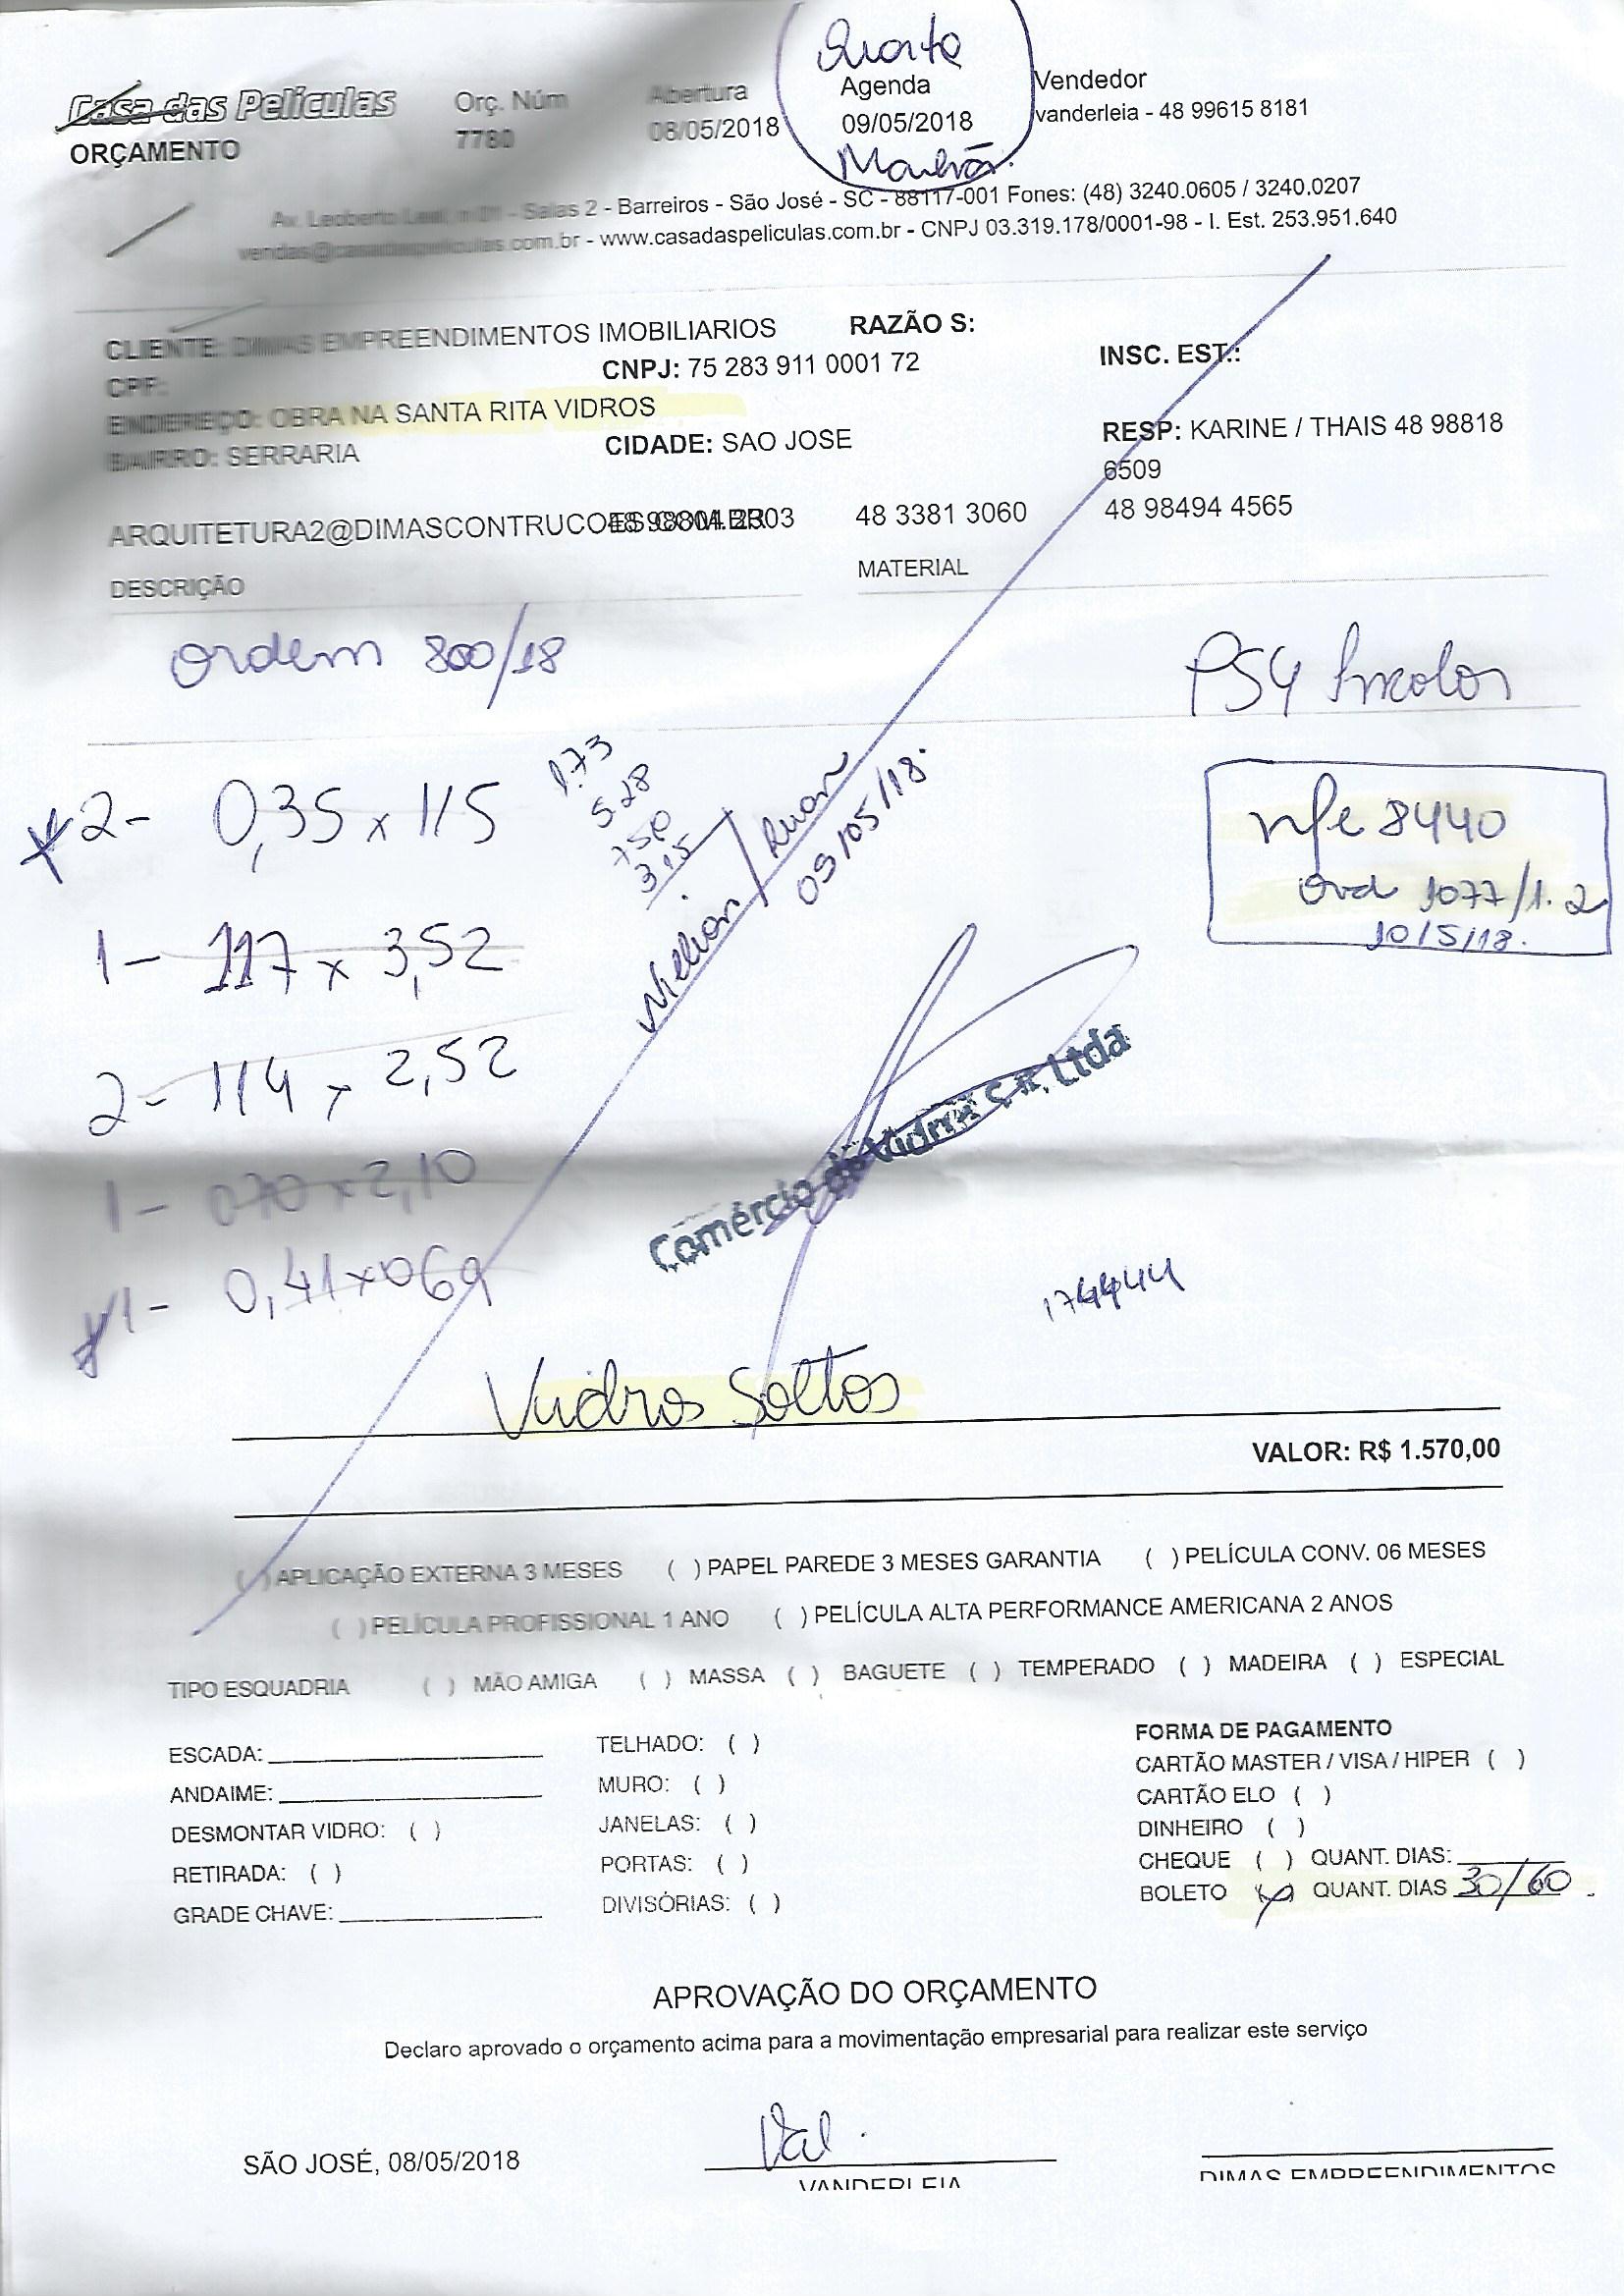 Quarta
Casa das Películas Orç. Núm Abertura Agenda Vendedor
ORÇAMENTO 7780 08/05/2018 09/05/2018 vanderleia - 48 99615 8181
Manhã.
Av. Leoberto Leal, - Salas 2 - Barreiros - São José - SC - 88117-001 Fones: (48) 3240.0605 / 3240.0207
vendas@casadaspeliculas.com.br - www.casadaspeliculas.com.br - CNPJ 03.319.178/0001-98 - I. Est. 253.951.640
CLIENTE: DIMAS EMPREENDIMENTOS IMOBILIARIOS RAZÃO S:
CPF: CNPJ: 75 283 911 0001 72 INSC. EST.:
ENDEREÇO: OBRA NA SANTA RITA VIDROS
BAIRRO: SERRARIA CIDADE: SAO JOSE RESP: KARINE / THAIS 48 98818
6509
ARQUITETURA2@DIMASCONTRUCOES.COM.BR 48 3381 3060 48 98494 4565
DESCRIÇÃO MATERIAL
Ordem 800/18
PS4 Incolor
*2- 0,35 x 115
1.73
5.28
7.50
3.15
Nielson / Ruan
09/05/18.
nfe 8440
Ord 1077/1.2
10/5/18.
1- 117 x 3,52
2- 114 x 2,52
1- 070 x 2,10
*1- 0,41 x 069
Comércio de Vidros S.R. Ltda
174444
Vidros Soltos
VALOR: R$ 1.570,00
( ) APLICAÇÃO EXTERNA 3 MESES ( ) PAPEL PAREDE 3 MESES GARANTIA ( ) PELÍCULA CONV. 06 MESES
( ) PELÍCULA PROFISSIONAL 1 ANO ( ) PELÍCULA ALTA PERFORMANCE AMERICANA 2 ANOS
TIPO ESQUADRIA ( ) MÃO AMIGA ( ) MASSA ( ) BAGUETE ( ) TEMPERADO ( ) MADEIRA ( ) ESPECIAL
ESCADA: TELHADO: ( ) FORMA DE PAGAMENTO
CARTÃO MASTER / VISA / HIPER ( )
ANDAIME: MURO: ( ) CARTÃO ELO ( )
DESMONTAR VIDRO: ( ) JANELAS: ( ) DINHEIRO ( )
RETIRADA: ( ) PORTAS: ( ) CHEQUE ( ) QUANT. DIAS:
GRADE CHAVE: DIVISÓRIAS: ( ) BOLETO (x) QUANT. DIAS 30/60
APROVAÇÃO DO ORÇAMENTO
Declaro aprovado o orçamento acima para a movimentação empresarial para realizar este serviço
Val.
SÃO JOSÉ, 08/05/2018
VANDERLEIA DIMAS EMPREENDIMENTOS